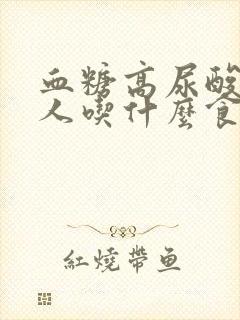 血糖高尿酸
人喫什麼食
紅燒帶鱼